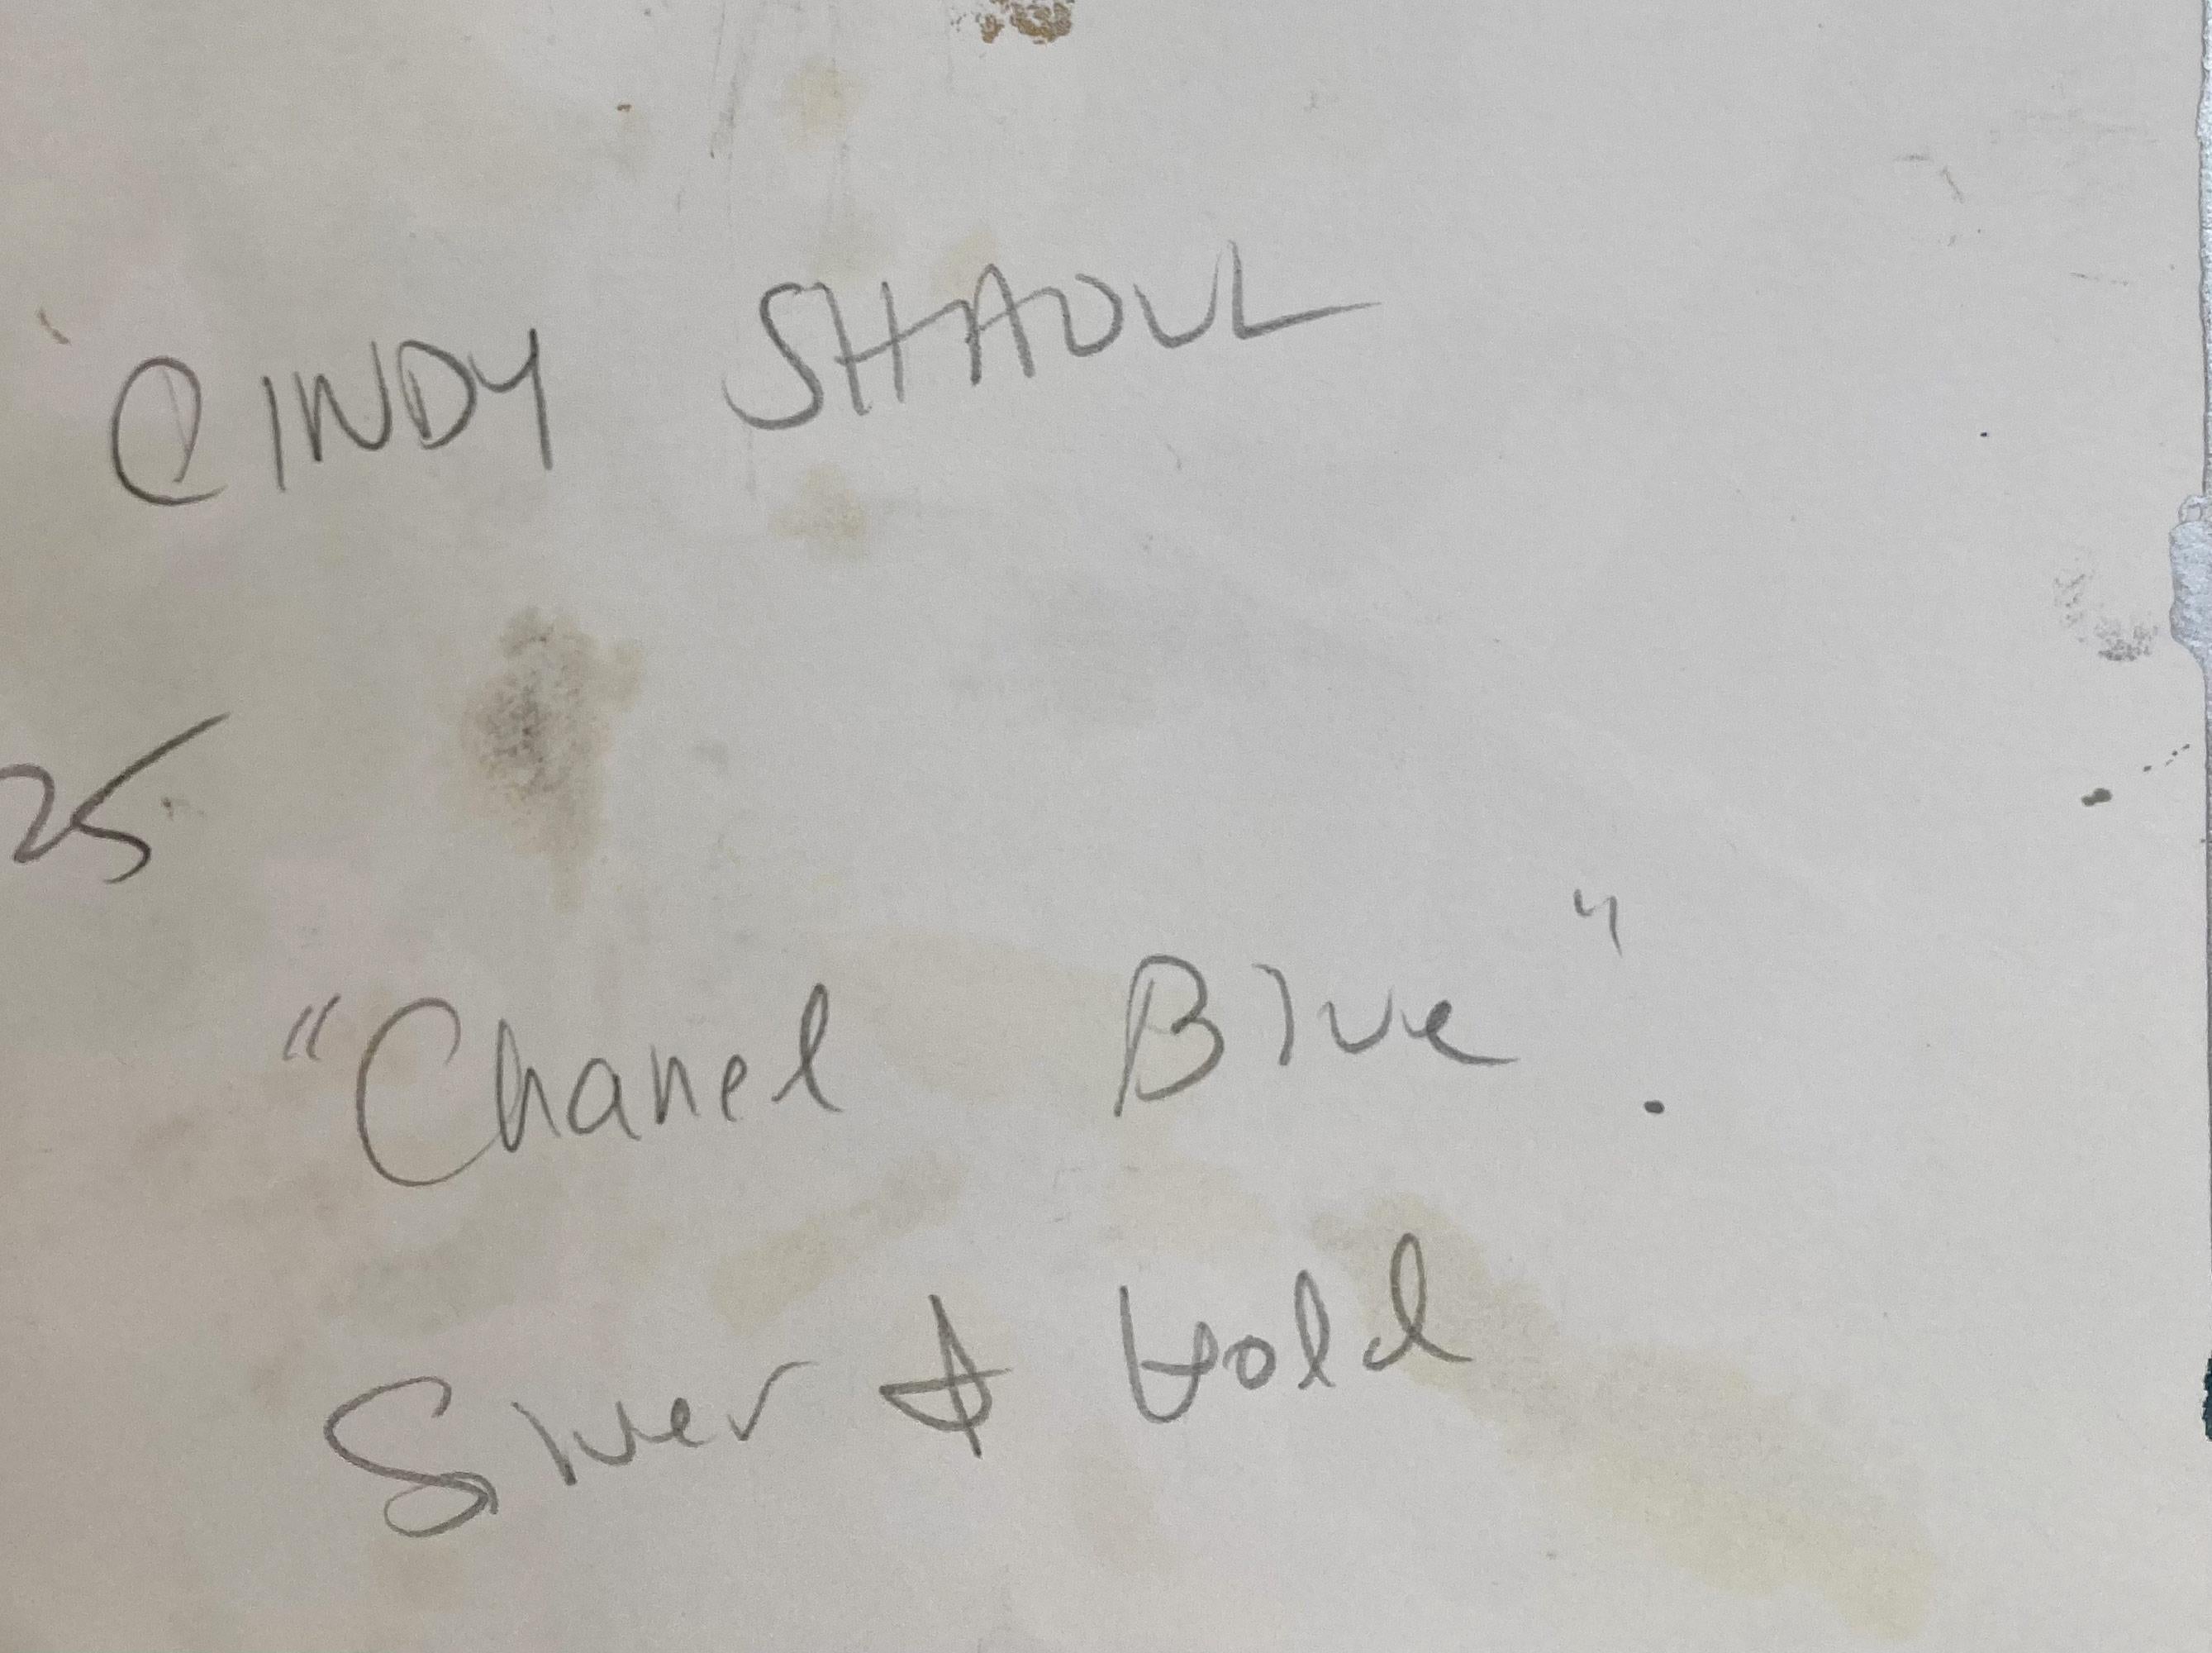 CINDY SHAOUL
25
"Chanel Blue".
Silver & Gold